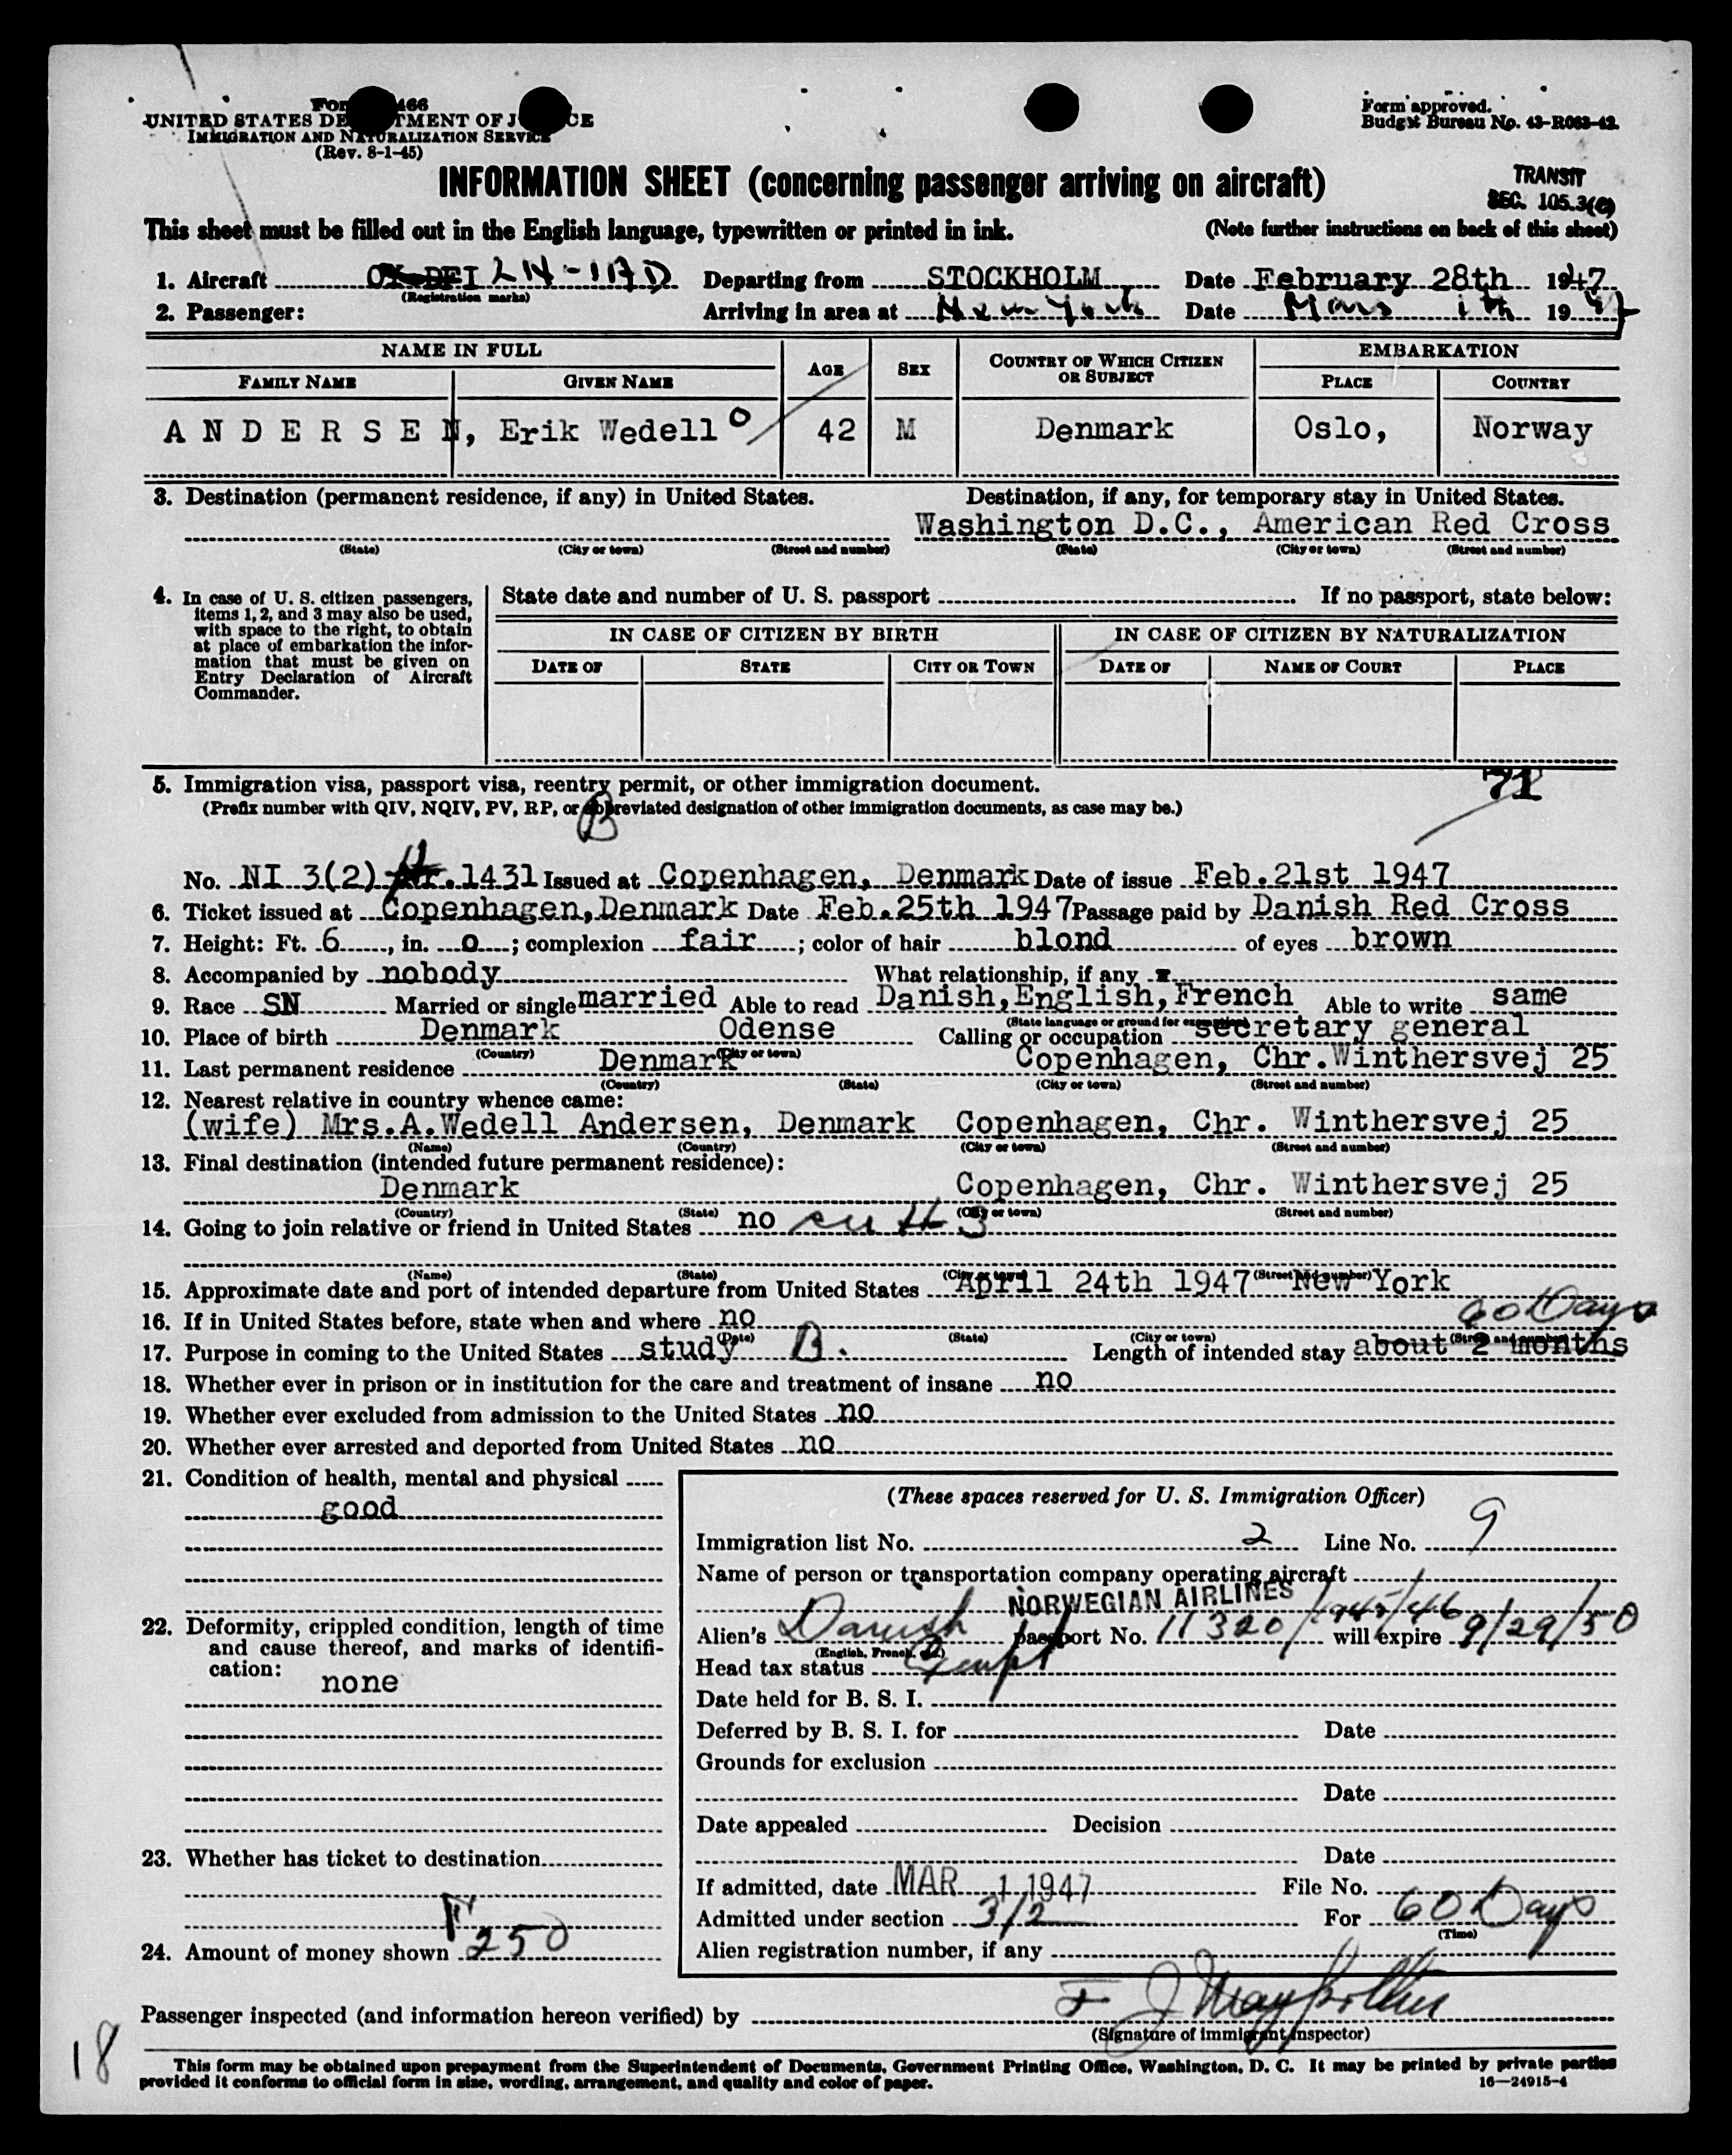 UNITED STATES DE TMENT OF J CE
IMMIGRATION AND NATURALIZATION SERVICE
(Rev. 8-1-45)
Form approved.
Budget Bureau No. 43-R063-42.
INFORMATION SHEET (concerning passenger arriving on aircraft)
TRANSIT
SEC. 105.3(C)
This sheet must be filled out in the English language, typewritten or printed in ink.
(Note further instructions on back of this sheet)
1. Aircraft LN-IAD Departing from STOCKHOLM Date February 28th 1947
(Registration marks)
2. Passenger: Arriving in area at New York Date Mars 1th 1947
NAME IN FULL AGE SEX COUNTRY OF WHICH CITIZEN OR SUBJECT EMBARKATION
FAMILY NAME GIVEN NAME PLACE COUNTRY
A N D E R S E N, Erik Wedell 42 M Denmark Oslo, Norway
3. Destination (permanent residence, if any) in United States. Destination, if any, for temporary stay in United States.
Washington D.C., American Red Cross
(State) (City or town) (Street and number) (State) (City or town) (Street and number)
4. In case of U. S. citizen passengers,
items 1, 2, and 3 may also be used,
with space to the right, to obtain
at place of embarkation the infor-
mation that must be given on
Entry Declaration of Aircraft
Commander.
State date and number of U. S. passport If no passport, state below:
IN CASE OF CITIZEN BY BIRTH IN CASE OF CITIZEN BY NATURALIZATION
DATE OF STATE CITY OR TOWN DATE OF NAME OF COURT PLACE
5. Immigration visa, passport visa, reentry permit, or other immigration document.
71
(Prefix number with QIV, NQIV, PV, RP, or abbreviated designation of other immigration documents, as case may be.)
B
No. NI 3(2) Nr.1431 Issued at Copenhagen, Denmark Date of issue Feb.21st 1947
6. Ticket issued at Copenhagen,Denmark Date Feb.25th 1947 Passage paid by Danish Red Cross
7. Height: Ft. 6, in. 0; complexion fair; color of hair blond of eyes brown
8. Accompanied by nobody What relationship, if any
9. Race SN Married or single married Able to read Danish,English,French Able to write same
(State language or ground for exemption)
10. Place of birth Denmark Odense Calling or occupation secretary general
(Country) (City or town)
11. Last permanent residence Denmark Copenhagen, Chr.Winthersvej 25
(Country) (State) (City or town) (Street and number)
12. Nearest relative in country whence came:
(wife) Mrs.A.Wedell Andersen, Denmark Copenhagen, Chr. Winthersvej 25
(Name) (Country) (City or town) (Street and number)
13. Final destination (intended future permanent residence):
Denmark Copenhagen, Chr. Winthersvej 25
(Country) (State) (City or town) (Street and number)
14. Going to join relative or friend in United States no
(Name) (State) (City or town) (Street and number)
15. Approximate date and port of intended departure from United States April 24th 1947 New York
16. If in United States before, state when and where no
60 Days
(Date) (State) (City or town) (Street and number)
17. Purpose in coming to the United States study B. Length of intended stay about 2 months
18. Whether ever in prison or in institution for the care and treatment of insane no
19. Whether ever excluded from admission to the United States no
20. Whether ever arrested and deported from United States no
21. Condition of health, mental and physical
good
22. Deformity, crippled condition, length of time
and cause thereof, and marks of identifi-
cation:
none
23. Whether has ticket to destination
24. Amount of money shown 250
(These spaces reserved for U. S. Immigration Officer)
Immigration list No. 2 Line No. 9
Name of person or transportation company operating aircraft
NORWEGIAN AIRLINES
Alien's Danish passport No. 11320/1945/46 will expire 9/29/50
(English, French, etc.)
Head tax status Exempt
Date held for B. S. I.
Deferred by B. S. I. for Date
Grounds for exclusion
Date
Date appealed Decision
Date
If admitted, date MAR 1 1947 File No.
Admitted under section 3/2 For 60 Days
(Time)
Alien registration number, if any
Passenger inspected (and information hereon verified) by
(Signature of immigrant inspector)
18
This form may be obtained upon prepayment from the Superintendent of Documents, Government Printing Office, Washington, D. C. It may be printed by private parties
provided it conforms to official form in size, wording, arrangement, and quality and color of paper.
16—24915-4